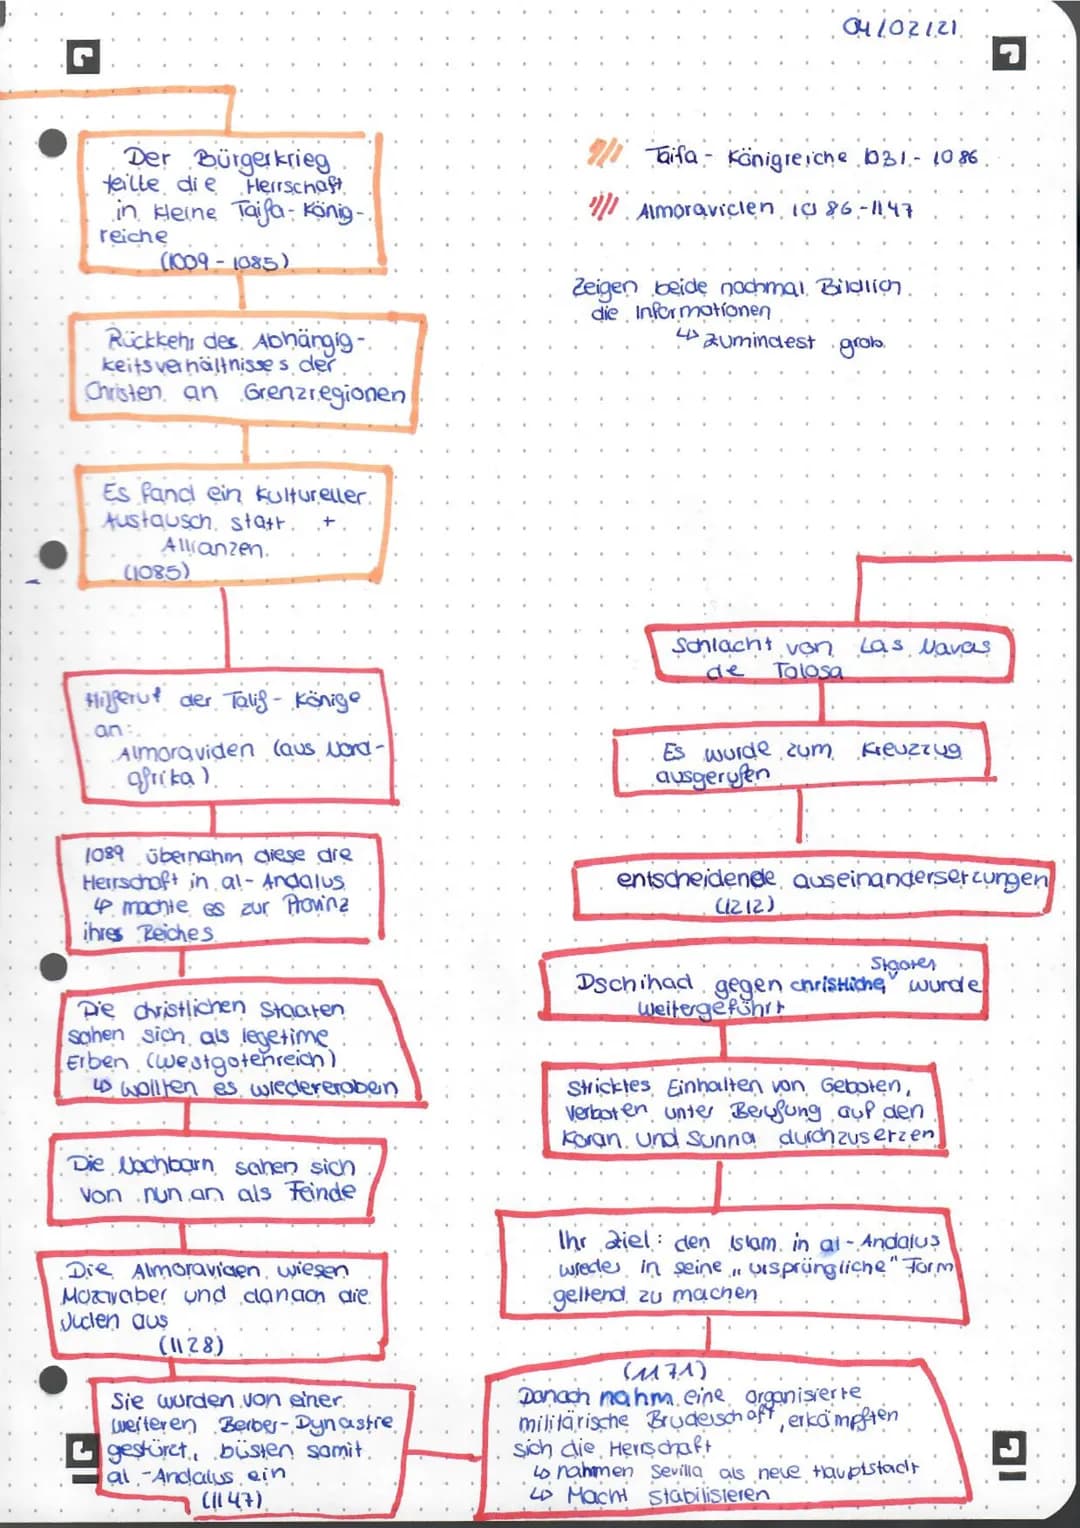 04/02/21
Der Bürgerkrieg
teilte die Herrschaft
in kleine Taifa-König-
reiche
(1009-1085)
Rückkehr des Abhängig-
keitsverhältnisses der
Christen an Grenzregionen
Es fand ein kultureller
Austausch statt +
Allianzen.
(1085)
Hilferuf der Taiif-Könige
an:
Almoraviden (aus Nord-
afrika)
1089 übernahm diese die
Herrschaft in al-Andalus
↳ machte es zur Provinz
ihres Reiches
Die christlichen Staaten
sahen sich als legetime
Erben (Westgotenreich)
↳ wollten es wiedereroben
Die Nachbarn sahen sich
von nun an als Feinde
Die Almoraviden wiesen
Mozaraber und danach die
Juden aus
(1128)
Sie wurden von einer
weiteren Berber-Dynastie
gestürzt, büsten somit
al-Andalus ein
(1147)
Taifa-Königreiche 1031-1086
Almoraviden 1086-1147
Zeigen beide nochmal Bildlich
die Informationen
↳ zumindest grob
Schlacht von Las Navas
de Tolosa
Es wurde zum Kreuzzug
ausgerufen
entscheidende auseinandersetzungen
(1212)
Staaten
Dschihad gegen christliche wurde
weitergeführt
Stricktes Einhalten von Geboten,
Verboten unter Berufung auf den
Koran und Sunna durchzusetzen
Ihr Ziel: den Islam in al-Andalus
wieder in seine „ursprüngliche" Form
geltend zu machen
(1171)
Danach nahm eine organisierte
militärische Bruderschaft, erkämpften
sich die Herrschaft
↳ nahmen Sevilla als neue Hauptstadt
↳ Macht stabilisieren